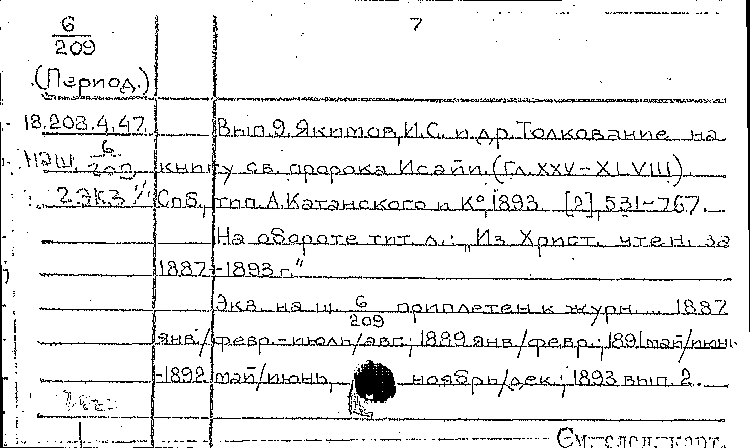 6/209 7
(Период.)
18.208.4.47. Вып.9. Якимов, И.С. и др. Толкование на
6/209 книгу св. пророка Исайи. (Гл. XXV-XLVIII).
2 экз. Спб., тип. А. Катанского и К°, 1893. [2], 531-767.
На обороте тит. л.: „Из Христ. чтен. за
1887-1893 г."
Экз. на ш. 6/209 приплетен к журн. 1887
янв./февр.-июль/авг.; 1889 янв./февр.; 1891 май/июнь
-1892 май/июнь, ноябрь/дек.; 1893 вып. 2.
См. след. карт.